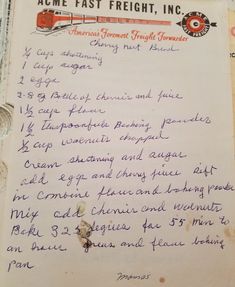 ACME FAST FREIGHT, INC.
America's Foremost Freight Forwarder
Cherry nut Bread
cup shortening
1 cup sugar
2 eggs
2-8 oz Bottle of cherries and juice
1½ cup flour
1½ teaspoonfuls Baking powder
½ cup walnuts chopped
Cream shortening and sugar
add eggs and cherry juice sift
in combine flour and baking powder
Mix add cherries and walnuts
Bake 325 degrees for 55 min to
an hour grease and flour baking
pan